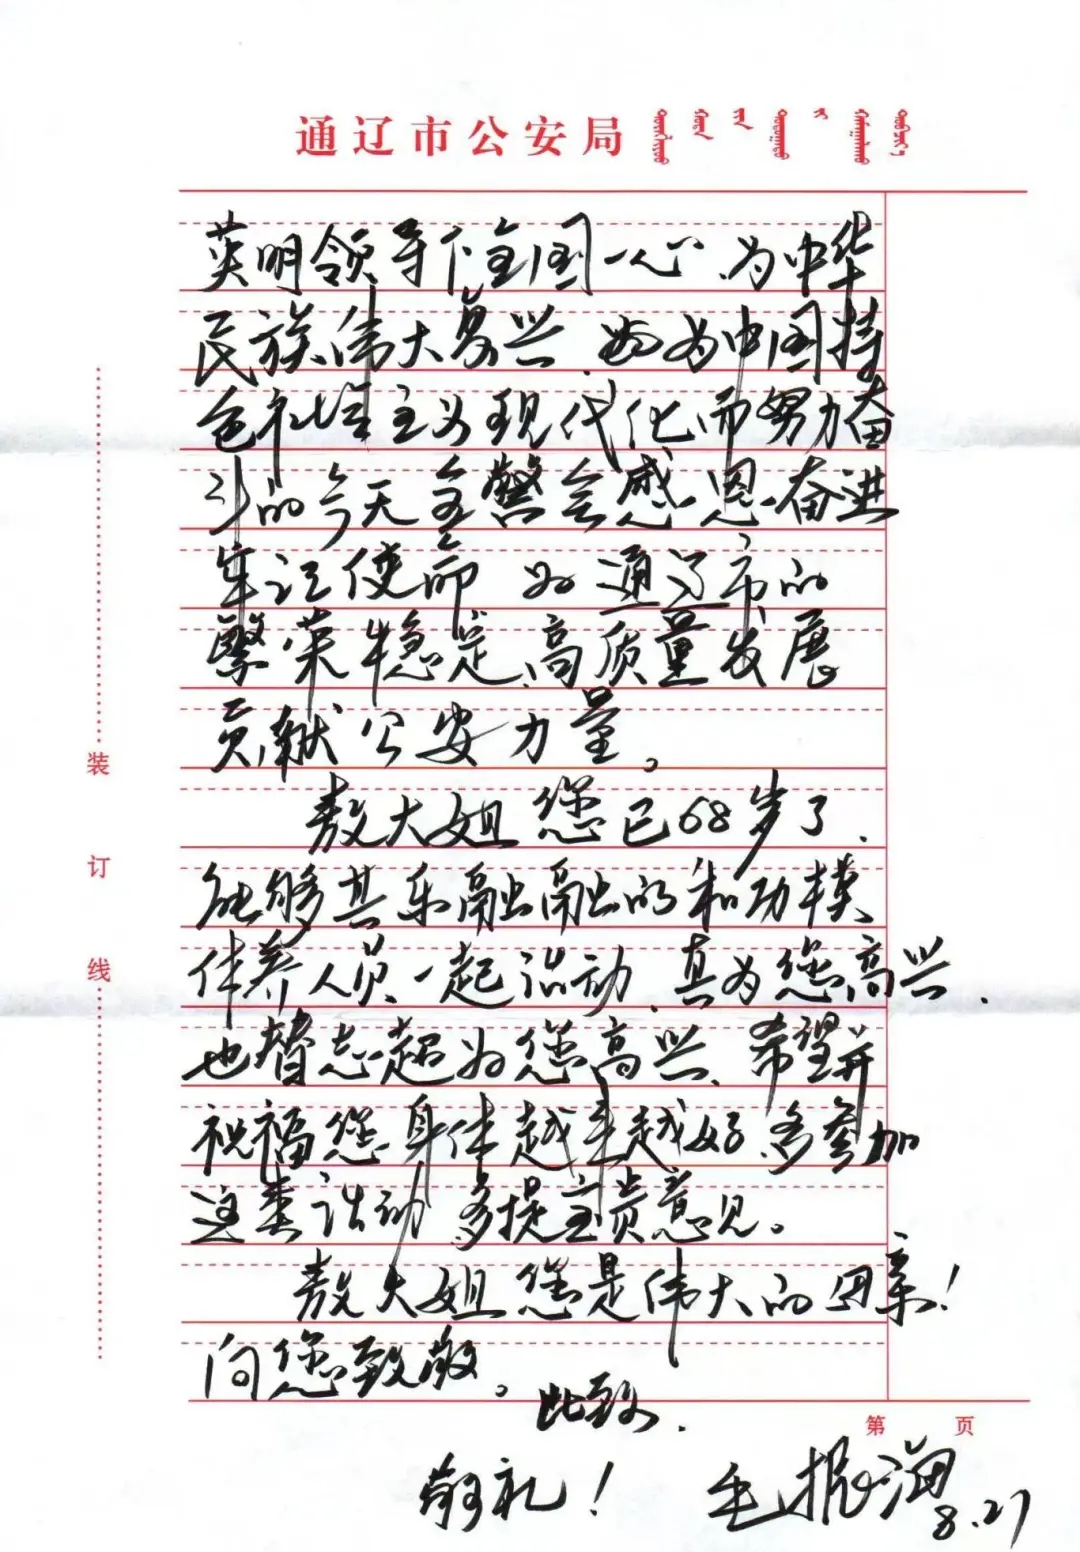 通辽市公安局
英明领导下全国一心、为中华
民族伟大复兴、为中国特
色社会主义现代化而努力奋
斗的今天全警会感恩奋进
牢记使命 为通辽市的
繁荣稳定、高质量发展
贡献公安力量。
敖大姐您已68岁了、
能够其乐融融的和功模
休养人员一起活动、真为您高兴、
也替志超为您高兴、希望并
祝福您身体越来越好、多参加
这类活动 多提宝贵意见。
敖大姐您是伟大的母亲！
向您致敬。
此致、
敬礼！
毛振海
8.27
第 页
装
订
线